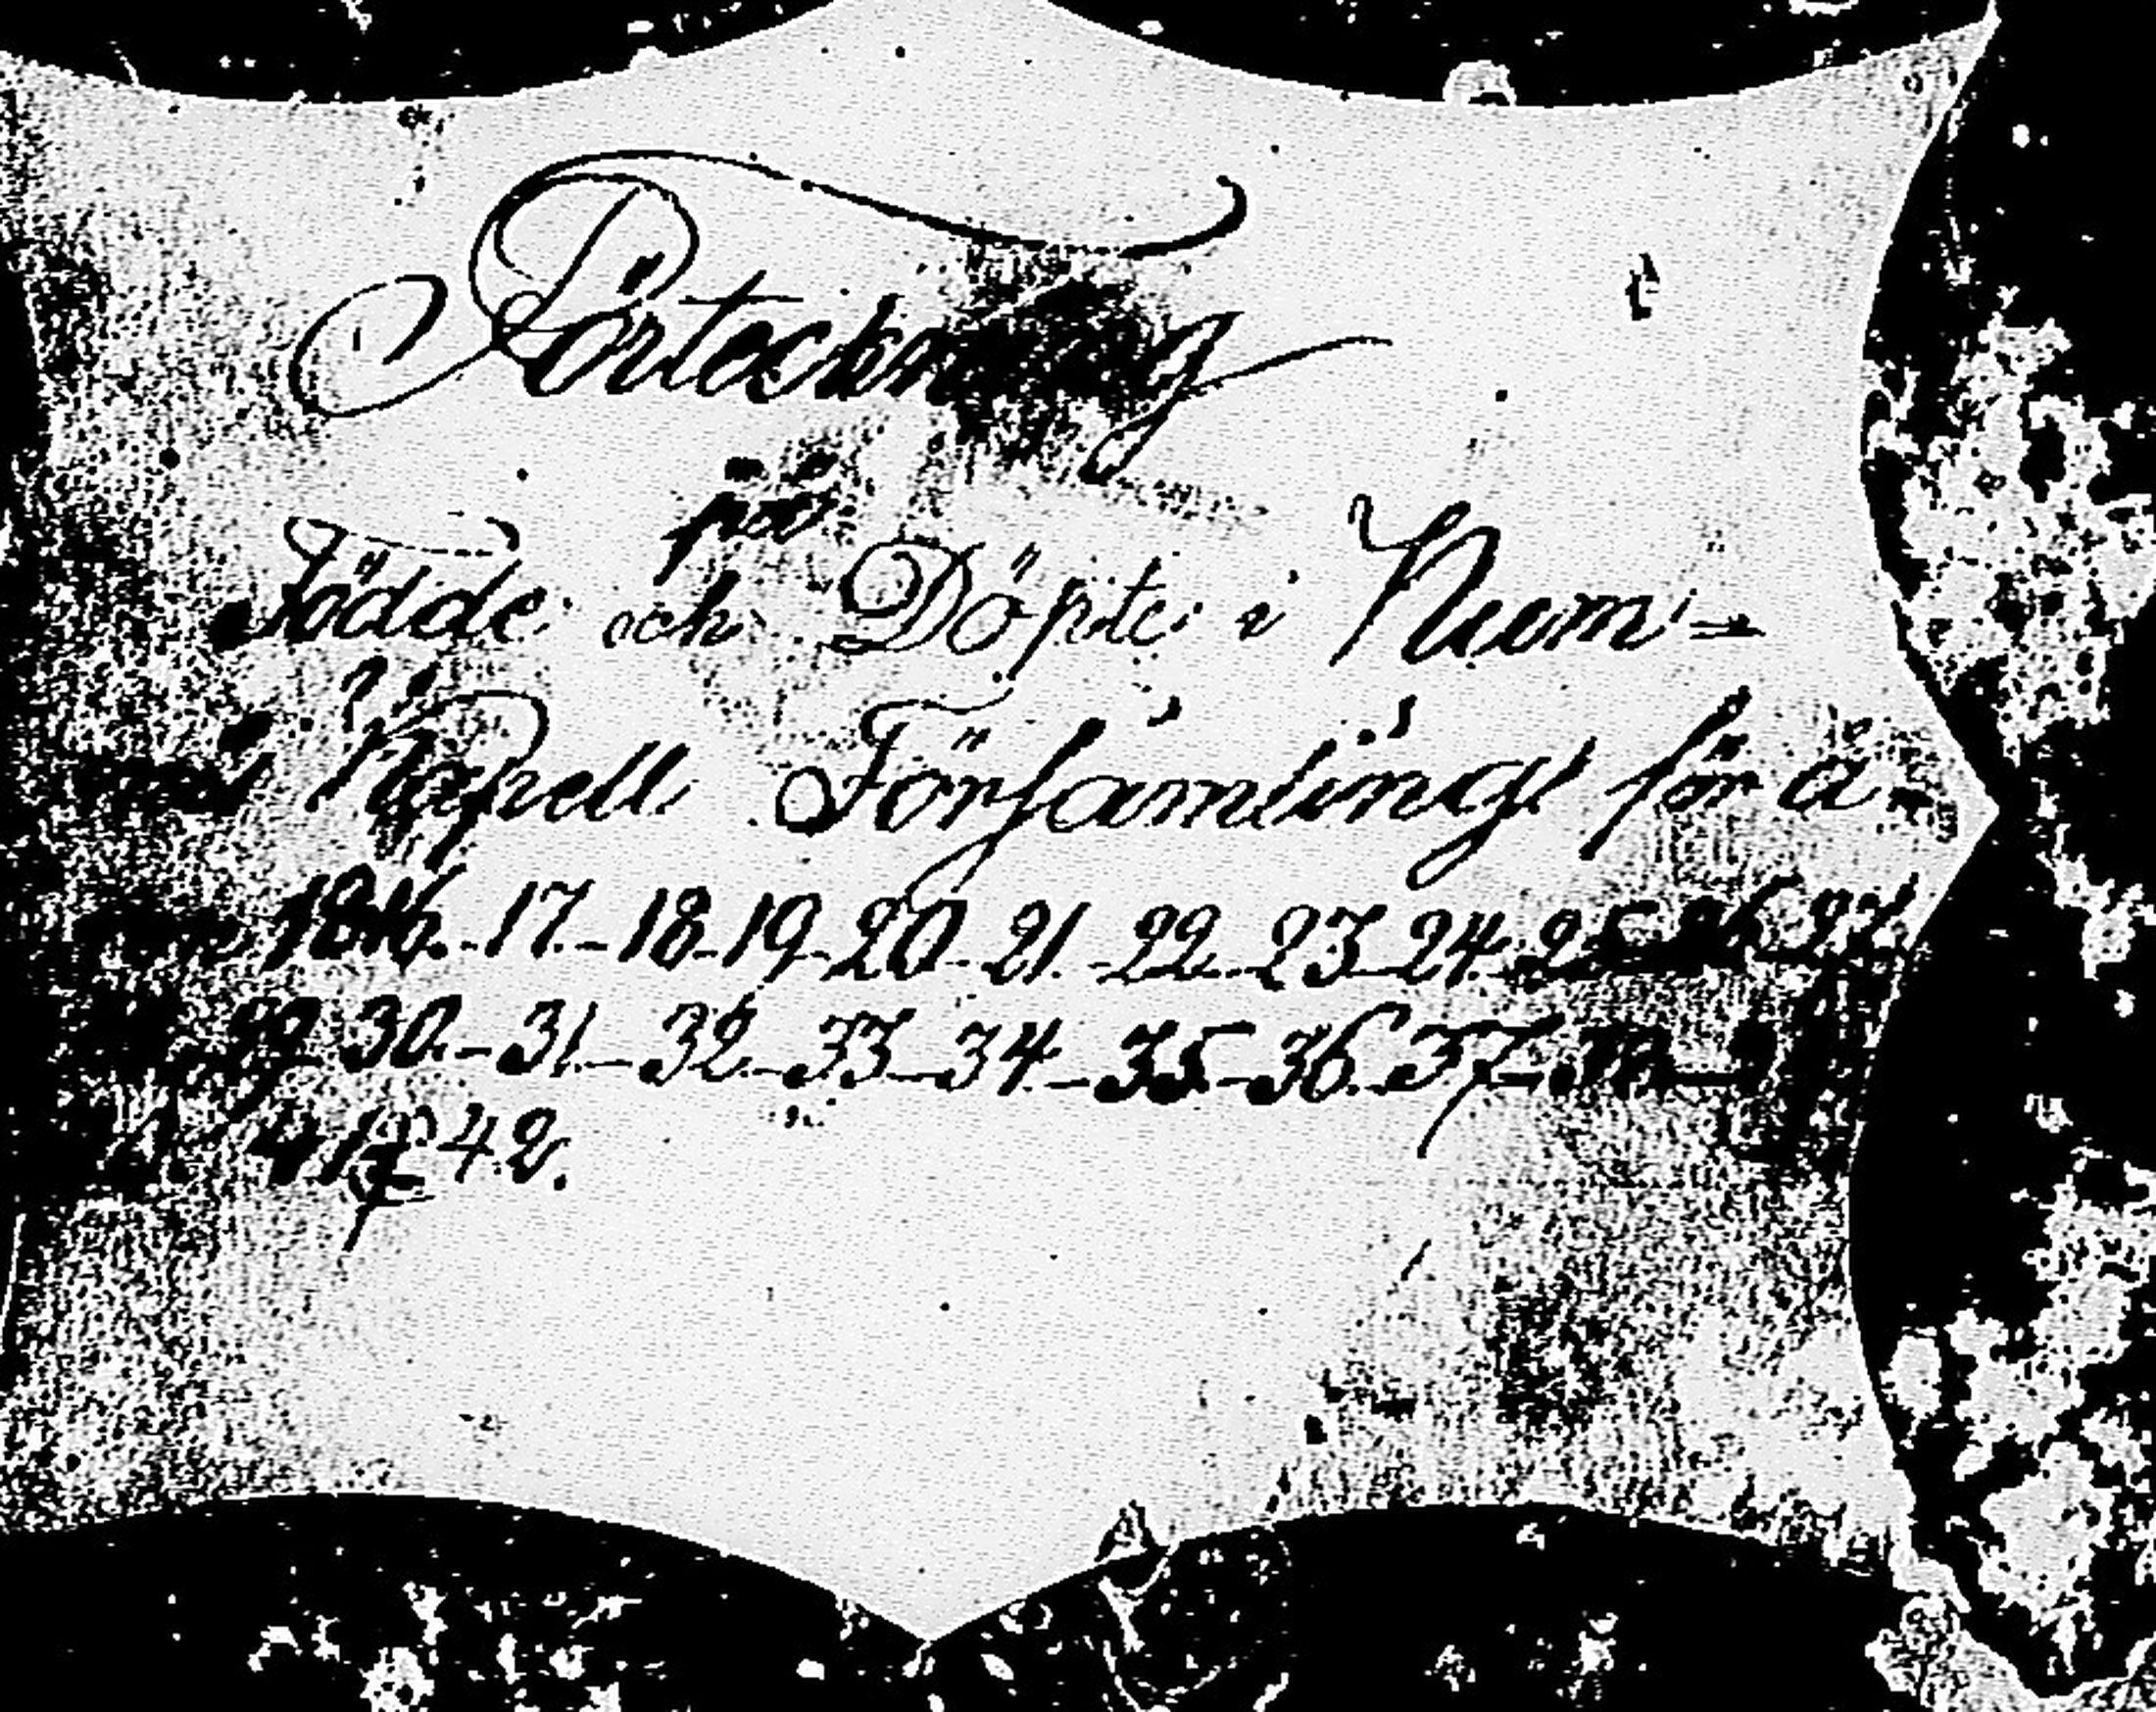 Förteckning
på
Födde och Döpte i Num=
Kapell Församling för å-
1816.-17.-18-19-20-21-22-23-24-25 26 27
29 30.-31-32-33-34-35-36-37-38-
41 42.